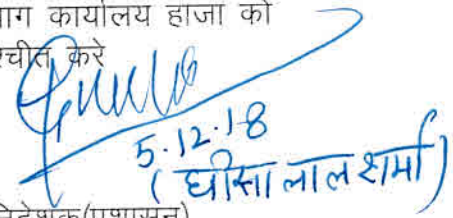 भाग कार्यालय हाजा को
श्चीत करे
5.12.18
(घीसा लाल शर्मा)
निदेशक(प्रशासन)